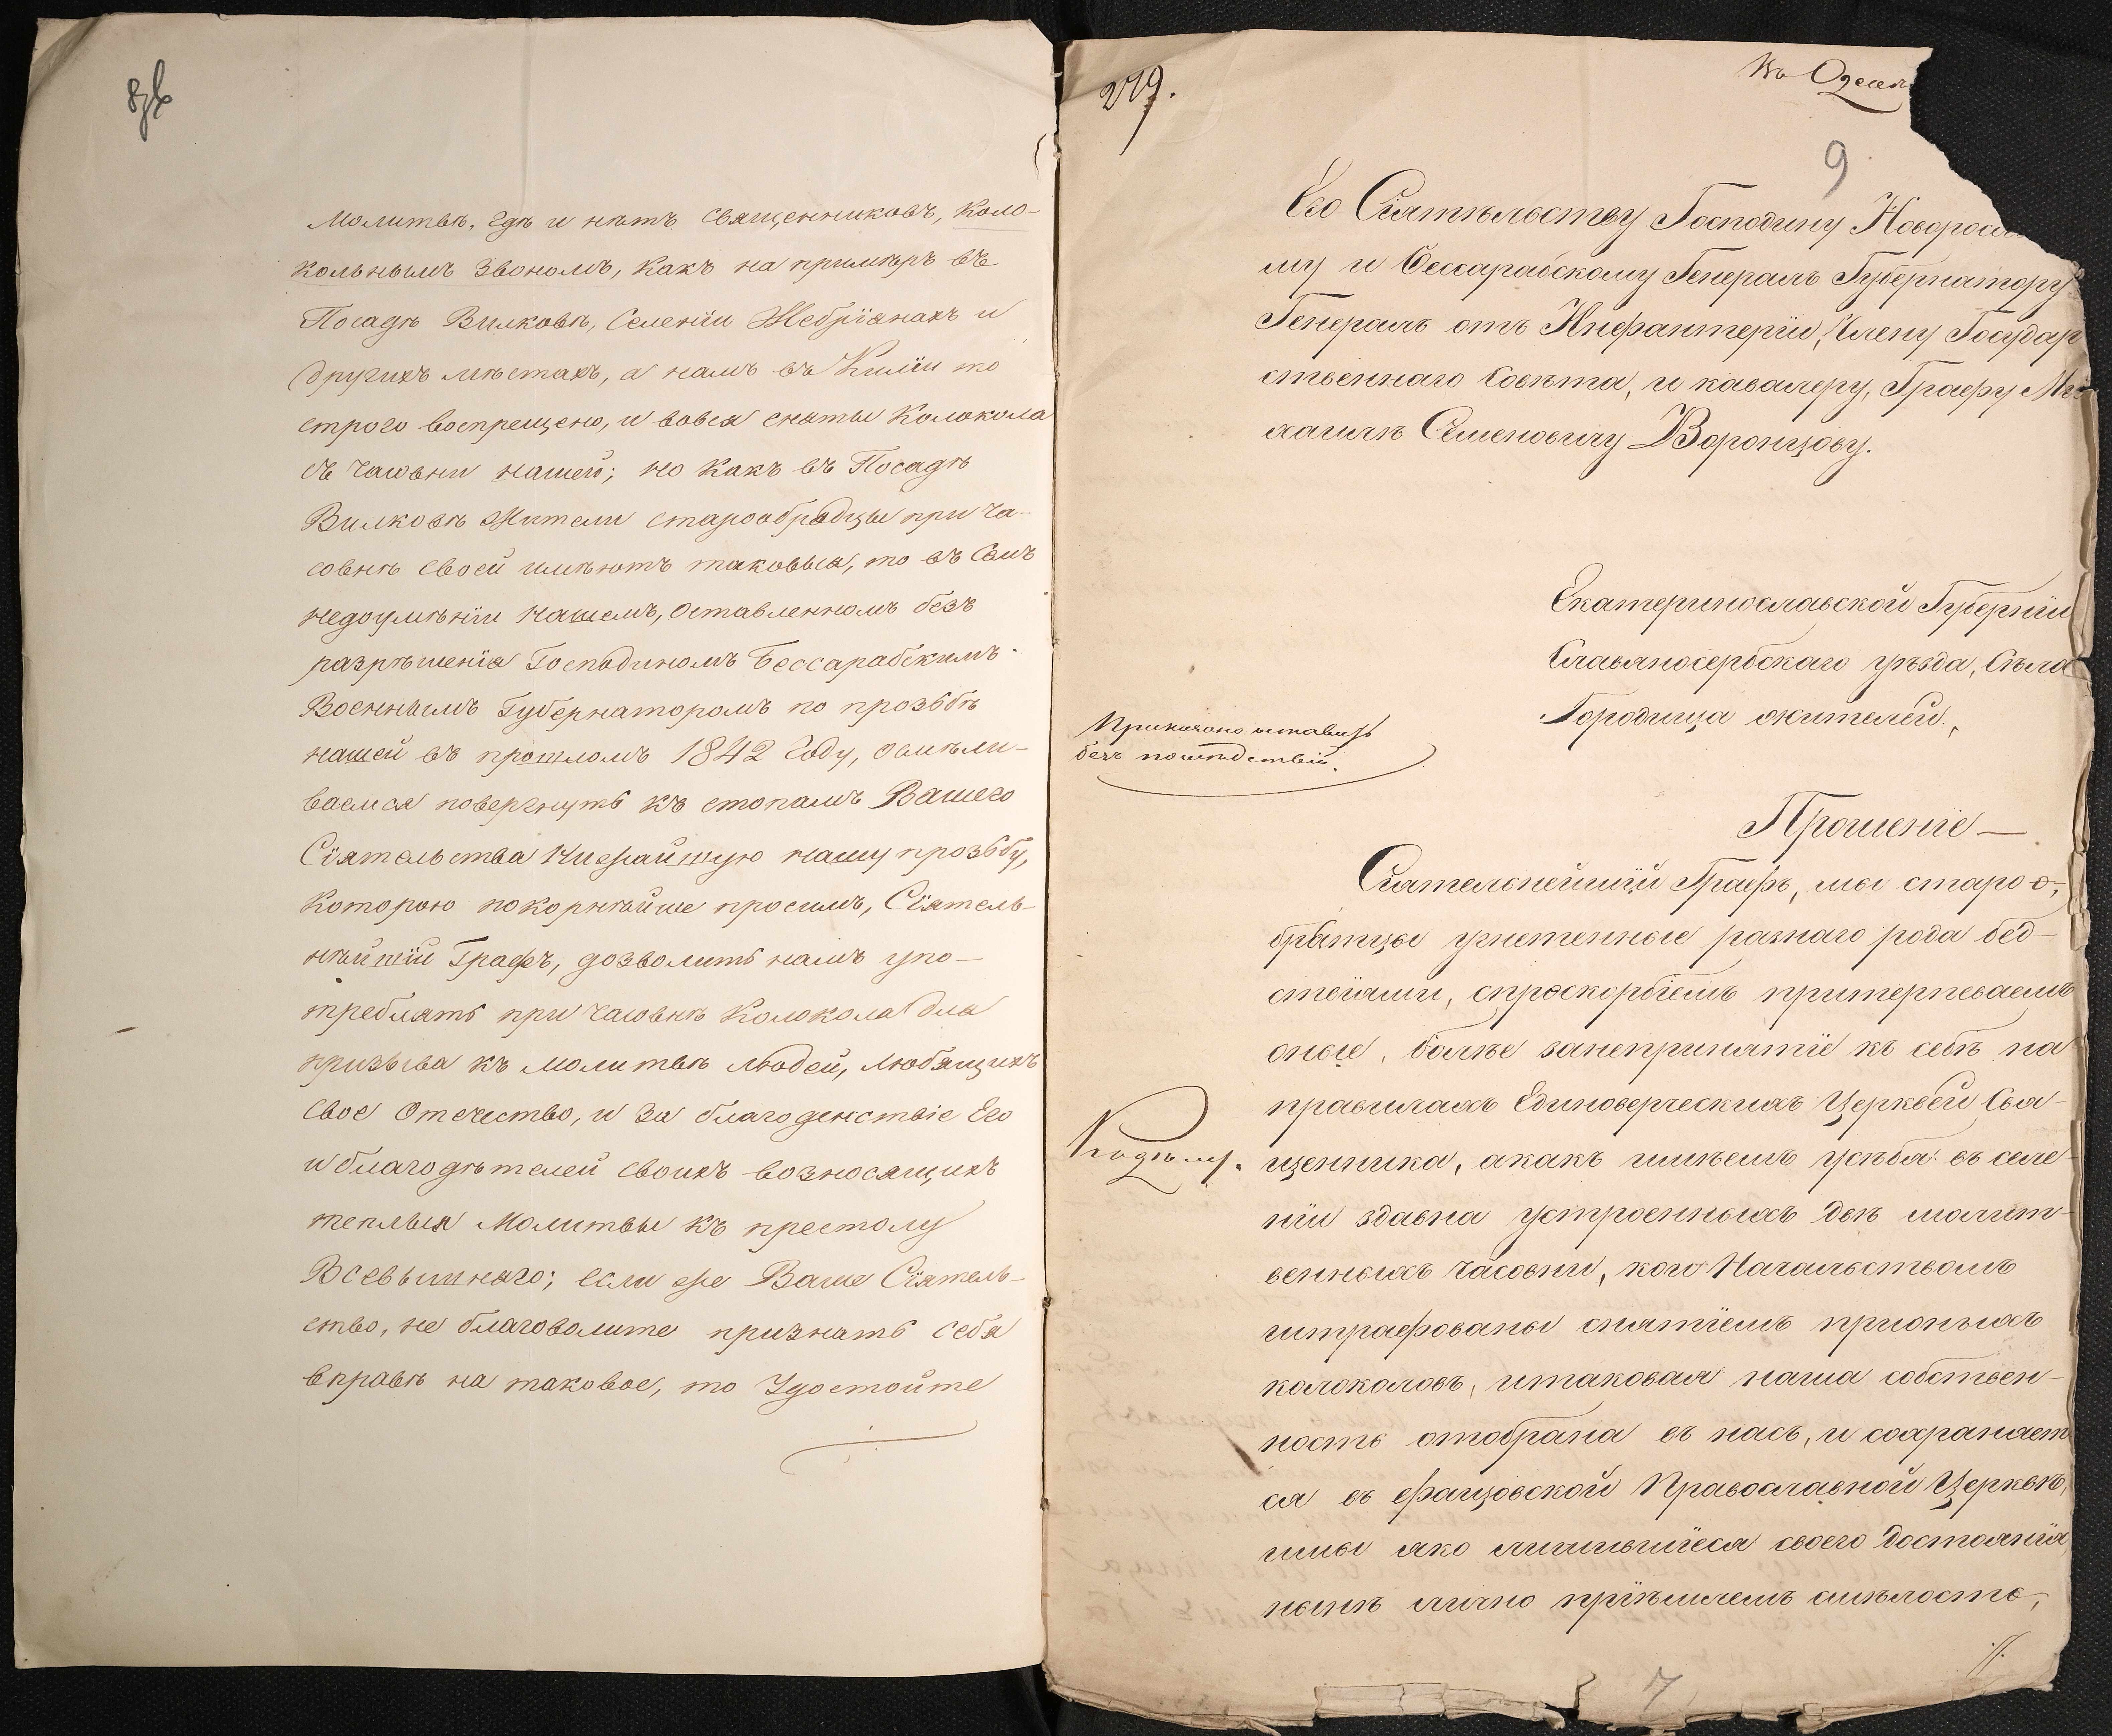 8об
молитвѣ, гдѣ и нѣтъ священниковъ, коло-
кольнымъ звономъ, какъ на примѣръ въ
Посадѣ Вилковѣ, Селеніи Жебріянахъ и
другихъ мѣстахъ, а намъ въ Киліи то
строго воспрещено, и вовся сняты колокола
съ часовни нашей; но какъ въ Посадѣ
Вилковѣ жители старообрядцы при ча-
совнѣ своей имѣютъ таковыя, то въ семъ
недоумѣніи нашемъ, оставленномъ безъ
разрѣшенія Господиномъ Бессарабскимъ
Военнымъ Губернаторомъ по прозьбѣ
нашей въ прошломъ 1842 году, осмѣли-
ваемся повергнуть къ стопамъ Вашего
Сіятельства нижайшую нашу прозьбу,
которою покорнѣйше просимъ, Сіятель-
нѣйшій Графъ, дозволить намъ упо-
треблять при часовнѣ колокола для
призыва къ молитвѣ людей, любящихъ
свое отечество, и за благоденствіе Его
и благодѣтелей своихъ возносящихъ
теплыя молитвы къ престолу
Всевышняго; если же Ваше Сіятель-
ство, не благоволите признать себя
вправѣ на таковое, то удостойте
279.
Въ Одессѣ
9
Его Сіятѣльству Господину Новоросс
му и Бессарабскому Генералъ Губернатору
Генералъ отъ Инфантеріи, Члену Государ
ственнаго Совѣта, и кавалеру, Графу Ми
хаилѣ Семеновичу Воронцову.
Екатеринославской Губерніи
Славяносербскаго уѣзда, Сѣла
Городища жителей,
Приказано оставить
безъ послѣдствій.
Прошеніе —
Сіятельнейшій Графъ, мы старо-о-
брятцы угнетенные разнаго рода бед-
ствіями, спроскорбіемъ притерпеваемъ
оные, болѣе занепринятіе къ себѣ на
правилахъ Единоверческихъ Церквей Свя-
Къ дѣлу.
щенника, акакъ имѣемъ усѣбя въ селе-
ніи здавна устроенныхъ двѣ молит-
венныхъ часовни, кои Начальствомъ
штрафованы снятіемъ прионыхъ
колоколовъ, итаковая наша собствен-
ность отобрана въ насъ, и сохраняет
ся въ фащовской Православной Церквѣ,
имы яко лишившіеся своего достоянія
нынѣ лично пріѣмлемъ смѣлость,
7